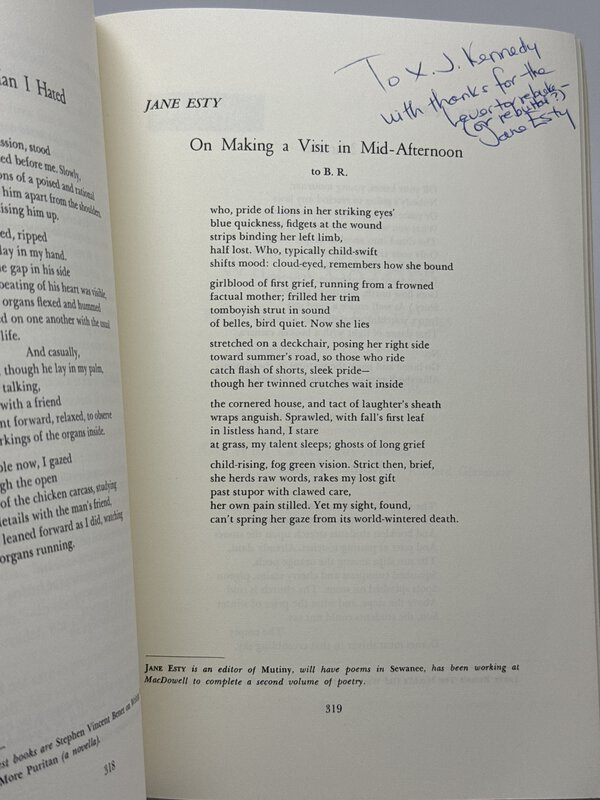 an I Hated
ssion, stood
ed before me. Slowly,
ons of a poised and rational
him apart from the shoulders,
ising him up.
ed, ripped
lay in my hand.
e gap in his side
beating of his heart was visible,
organs flexed and hummed
d on one another with the usual
life.
And casually,
, though he lay in my palm,
talking,
with a friend
nt forward, relaxed, to observe
rkings of the organs inside.
ble now, I gazed
gh the open
of the chicken carcass, studying
details with the man's friend,
leaned forward as I did, watching
organs running.
est books are Stephen Vincent Benet on
More Puritan (a novella).
318
To X. J. Kennedy
with thanks for the
rebuke
(or rebuttal?)—
Jane Esty
JANE ESTY
On Making a Visit in Mid-Afternoon
to B. R.
who, pride of lions in her striking eyes'
blue quickness, fidgets at the wound
strips binding her left limb,
half lost. Who, typically child-swift
shifts mood: cloud-eyed, remembers how she bound
girlblood of first grief, running from a frowned
factual mother; frilled her trim
tomboyish strut in sound
of belles, bird quiet. Now she lies
stretched on a deckchair, posing her right side
toward summer's road, so those who ride
catch flash of shorts, sleek pride—
though her twinned crutches wait inside
the cornered house, and tact of laughter's sheath
wraps anguish. Sprawled, with fall's first leaf
in listless hand, I stare
at grass, my talent sleeps; ghosts of long grief
child-rising, fog green vision. Strict then, brief,
she herds raw words, rakes my lost gift
past stupor with clawed care,
her own pain stilled. Yet my sight, found,
can't spring her gaze from its world-wintered death.
JANE ESTY is an editor of Mutiny, will have poems in Sewanee, has been working at
MacDowell to complete a second volume of poetry.
319